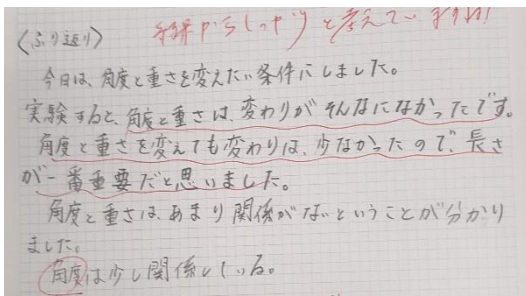 結果からしっかりと考えていますね!
〈ふり返り〉
今日は、角度と重さを変えたい条件にしました。
実験すると、角度と重さは、変わりがそんなになかったです。
角度と重さを変えても変わりは、少なかったので、長さ
が一番重要だと思いました。
角度と重さは、あまり関係がないということが分かり
ました。
角度は少し関係している。